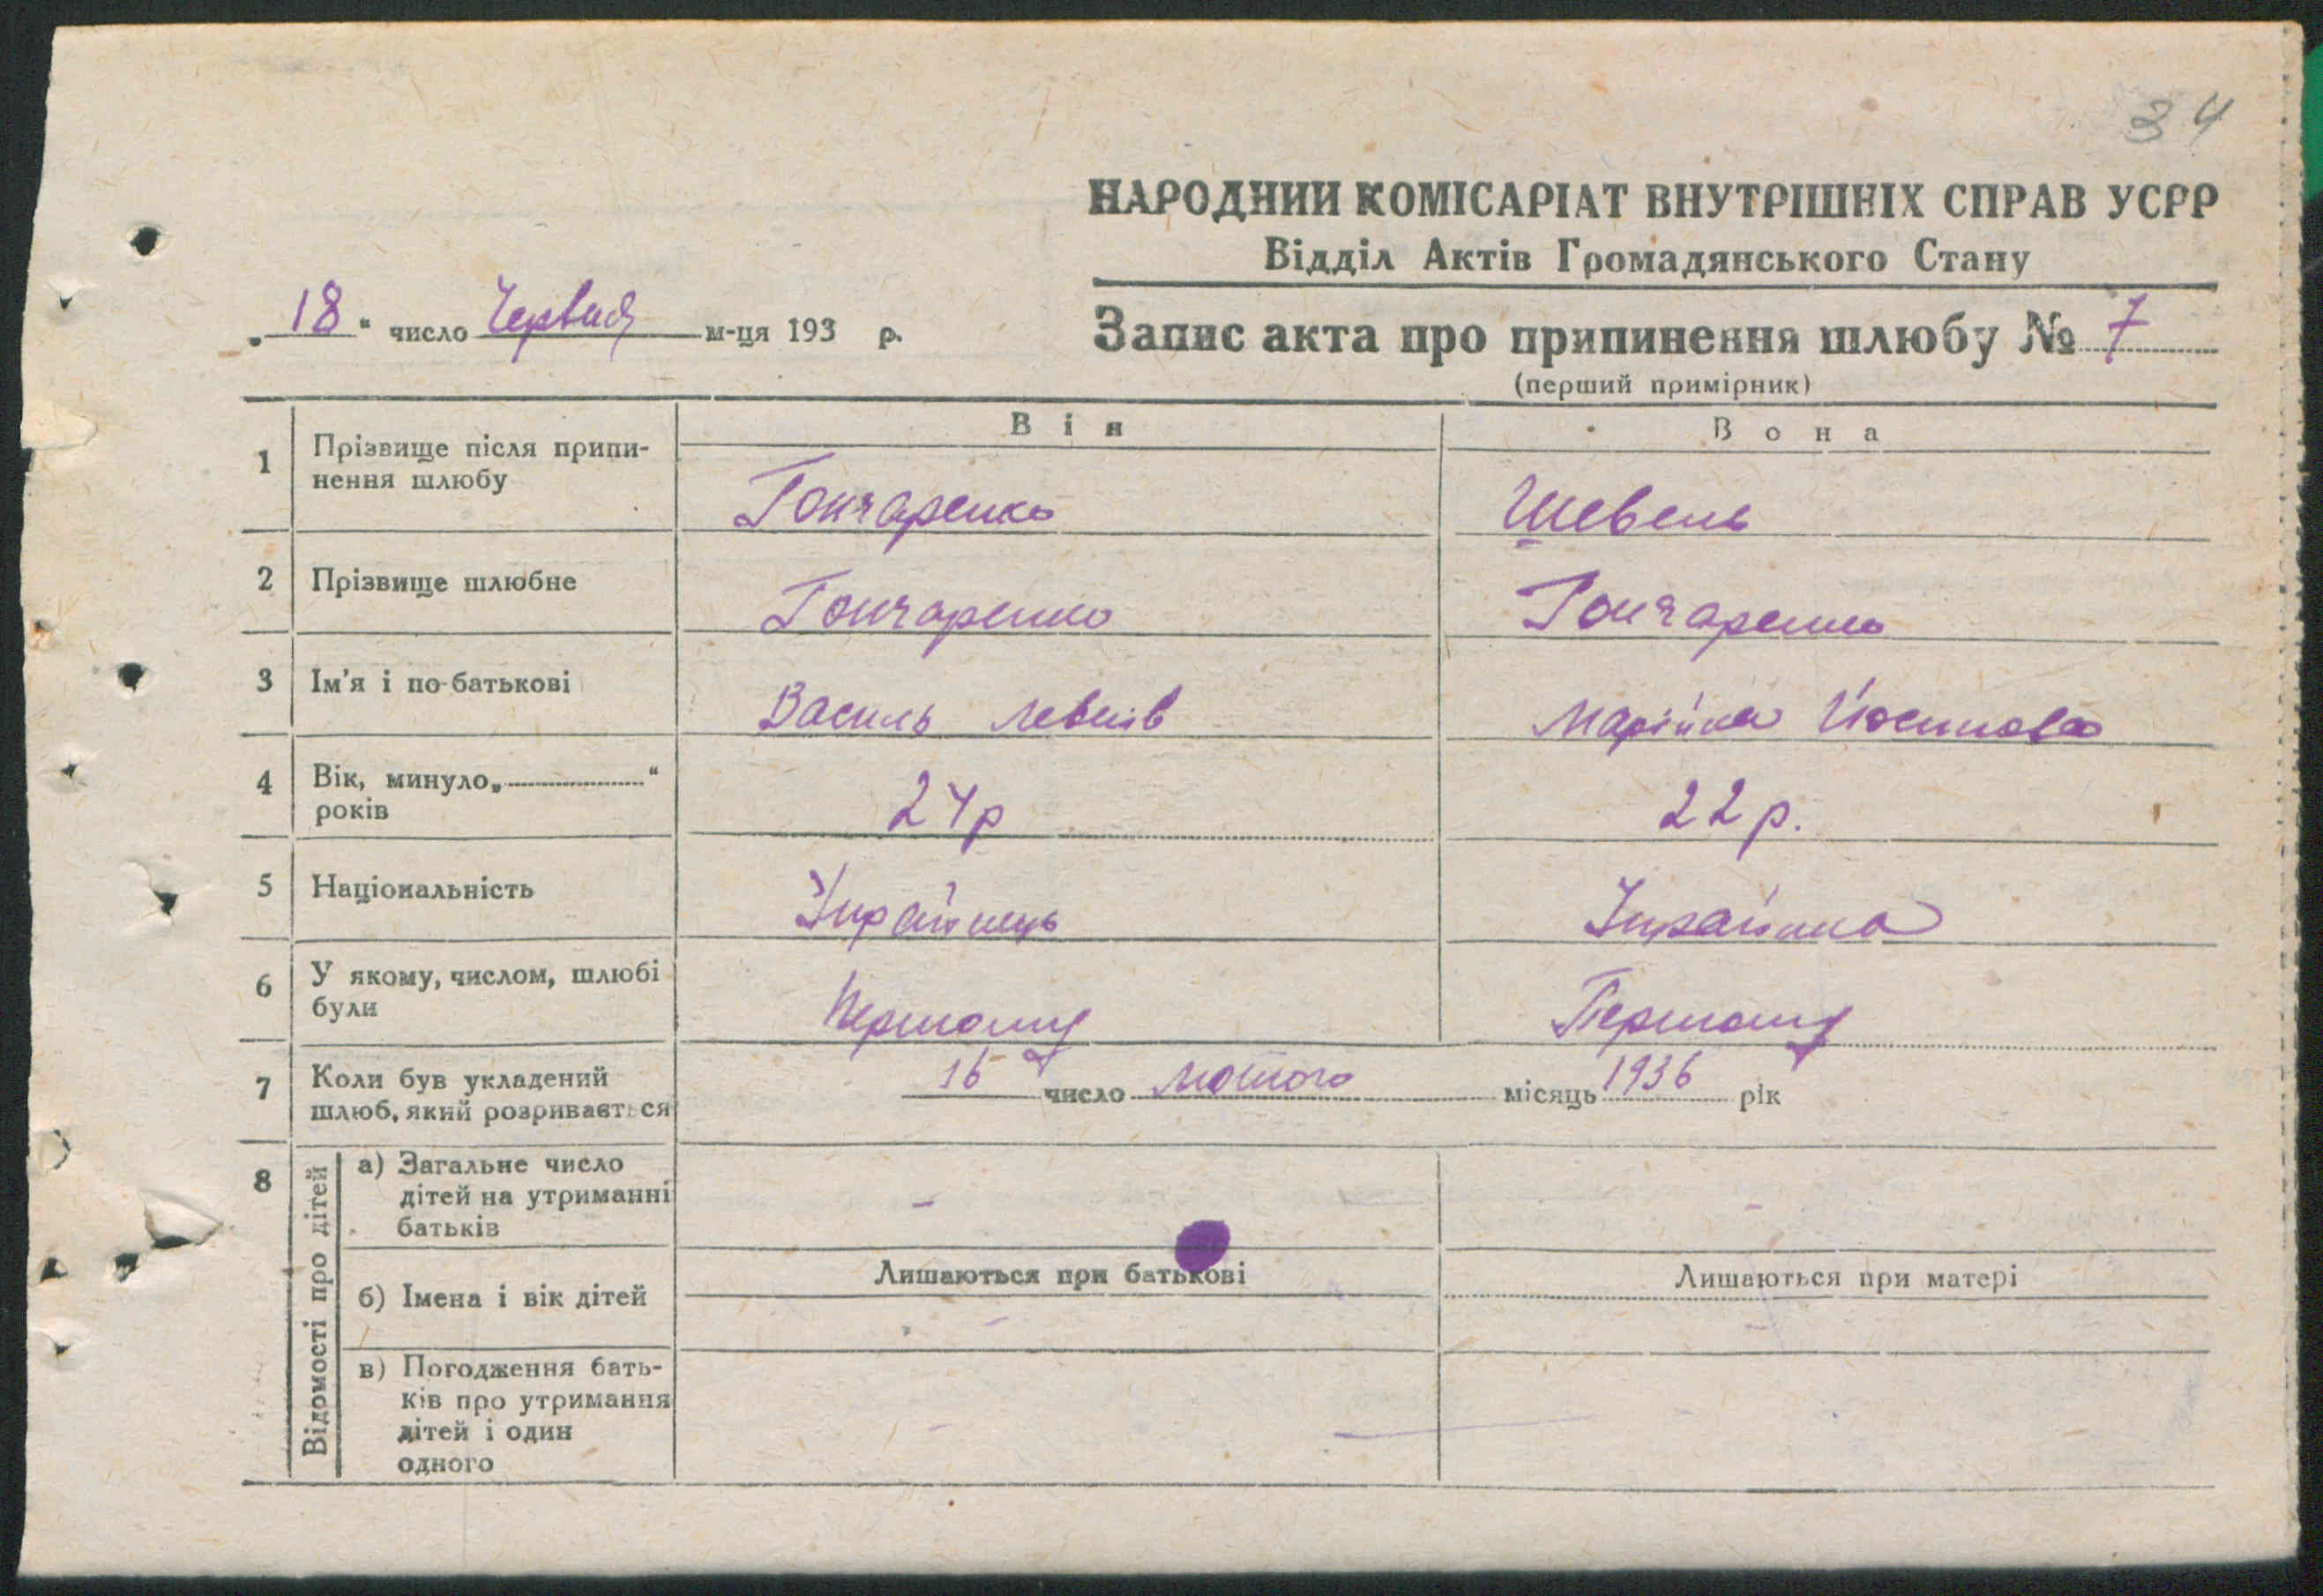 34
НАРОДНИЙ КОМІСАРІАТ ВНУТРІШНІХ СПРАВ УСРР
Відділ Актів Громадянського Стану
„18“ число Червня м-ця 193 р.
Запис акта про припинення шлюбу № 7
(перший примірник)
Він Вона
1 Прізвище після припи-
нення шлюбу
Гончаренко Шевель
2 Прізвище шлюбне Гончаренко Гончаренко
3 Ім'я і по-батькові Василь Левків Марійка Йосипова
4 Вік, минуло „ “
років
24р 22р.
5 Національність Українець Українка
6 У якому, числом, шлюбі
були
Першому Першому
7 Коли був укладений
шлюб, який розривається
16 число Лютого місяць 1936 рік
8 Відомості про дітей
а) Загальне число
дітей на утриманні
батьків
- -
б) Імена і вік дітей
Лишаються при батькові Лишаються при матері
- -
в) Погодження бать-
ків про утримання
дітей і один
одного
-